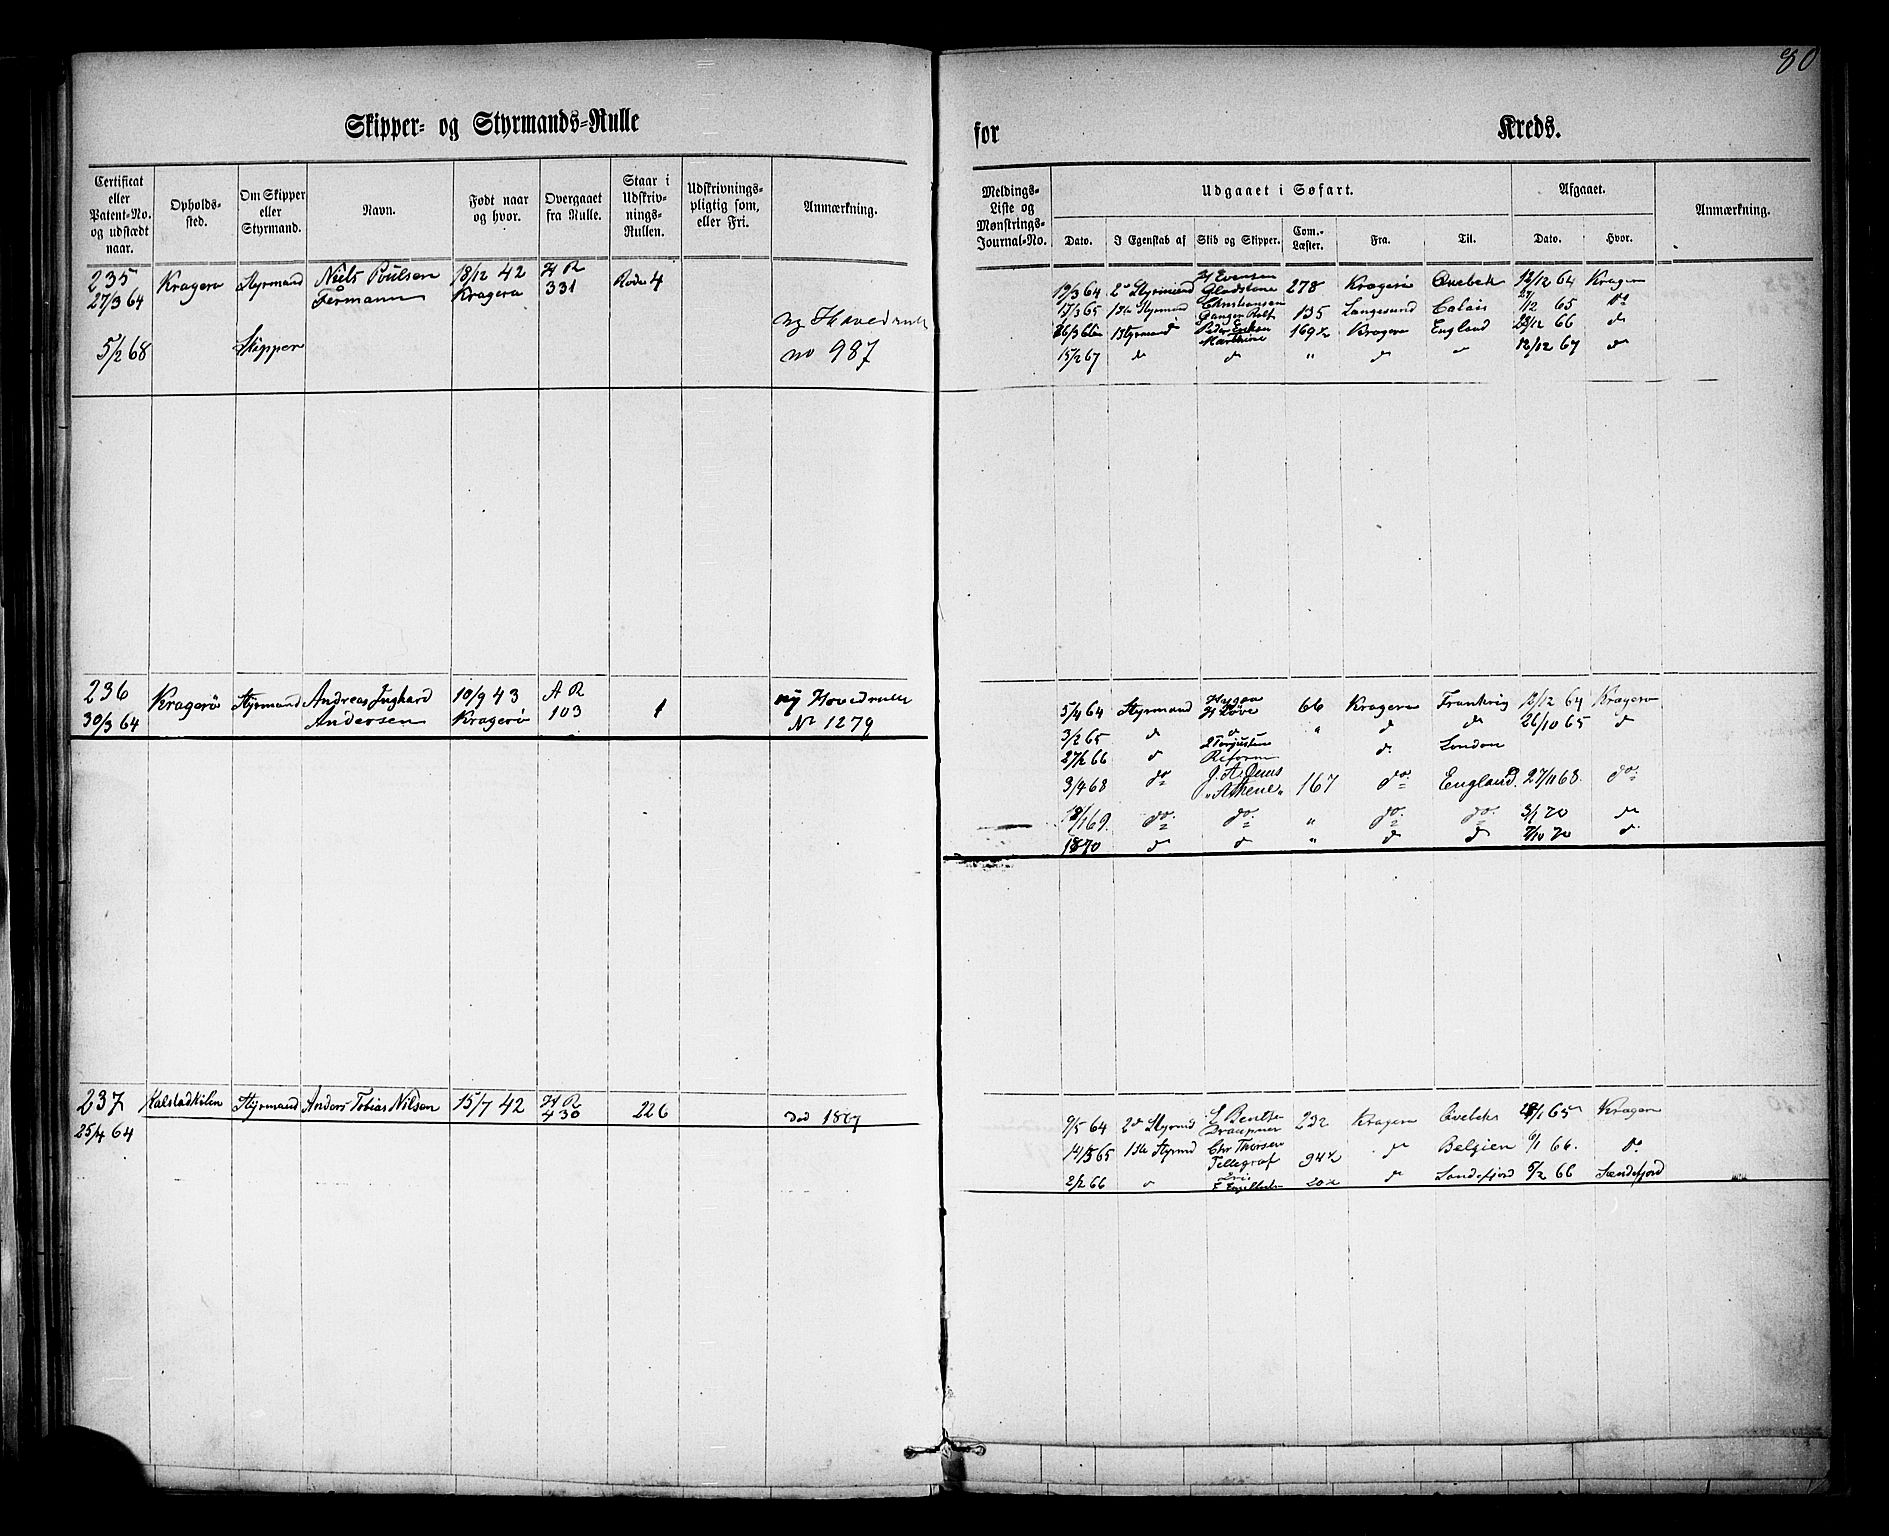 80
Skipper- og Styrmands-Rulle
for Kreds.
Certificat eller Patent-No. og udstædt naar.
Opholds-sted.
Om Skipper eller Styrmand.
Navn.
Født naar og hvor.
Overgaaet fra Rulle.
Staar i Udskriv-nings-Rullen.
Udskrivnings-pligtig som, eller Fri.
Anmærkning.
Meldings-Liste og Mønstrings-Journal-No.
Udgaaet i Søfart.
Afgaaet.
Anmærkning.
Dato. I Egenskab af Skib og Skipper. Com.-Læster. Fra. Til. Dato. Hvor.
235 Kragerø Styrmand Niels Poulsen 18/12 42 H R Rode 4
27/3 64 Fermann Kragerø 331
ny Hovedrulle
5/2 68 Skipper no 987
H Evensen
19/3 64 2d Styrmand Gladstone 278 Kragerø 12/12 64 Kragerø
Christiansen
17/3 65 1ste Styrmand Ganger Rolf 135 Langesund Calais 12 65 do
Peder
26/3 66 1 Styrmand 169 1/2 Kragerø England /12 66 do
15/2 67 do do " do 12/12 67 do
236 Kragerø Styrmand Andreas Inghard 10/9 43 A R 1 ny Hovedrulle
30/3 64 Andersen Kragerø 103 No 1279
5/4 64 Styrmand 66 Kragerø Frankrig 12/12 64 Kragerø
3/2 65 do do " do do 26/10 65 do
27/2 66 do Reform do London
J. A. Jens
3/4 68 do "Athene" 167 do England 27/11 68. do
69. do do " do do 3/1 70 do
1870 do do " do do 7/10 70 do
237 Kalstadkilen Styrmand Anders Tobias Nilsen 15/7 42 H R 226
430 Død 1867
25/4 64
Bentsen
9/5 64 2d Styrmd Draupner 232 Kragerø 1 65 Kragerø
Chr Thorsen
65 1ste Styrmd Tellegraf 94 1/2 do Belgien 6/1 66. do
2/2 66 do do Sandefjord 5/2 66 Sandefjord